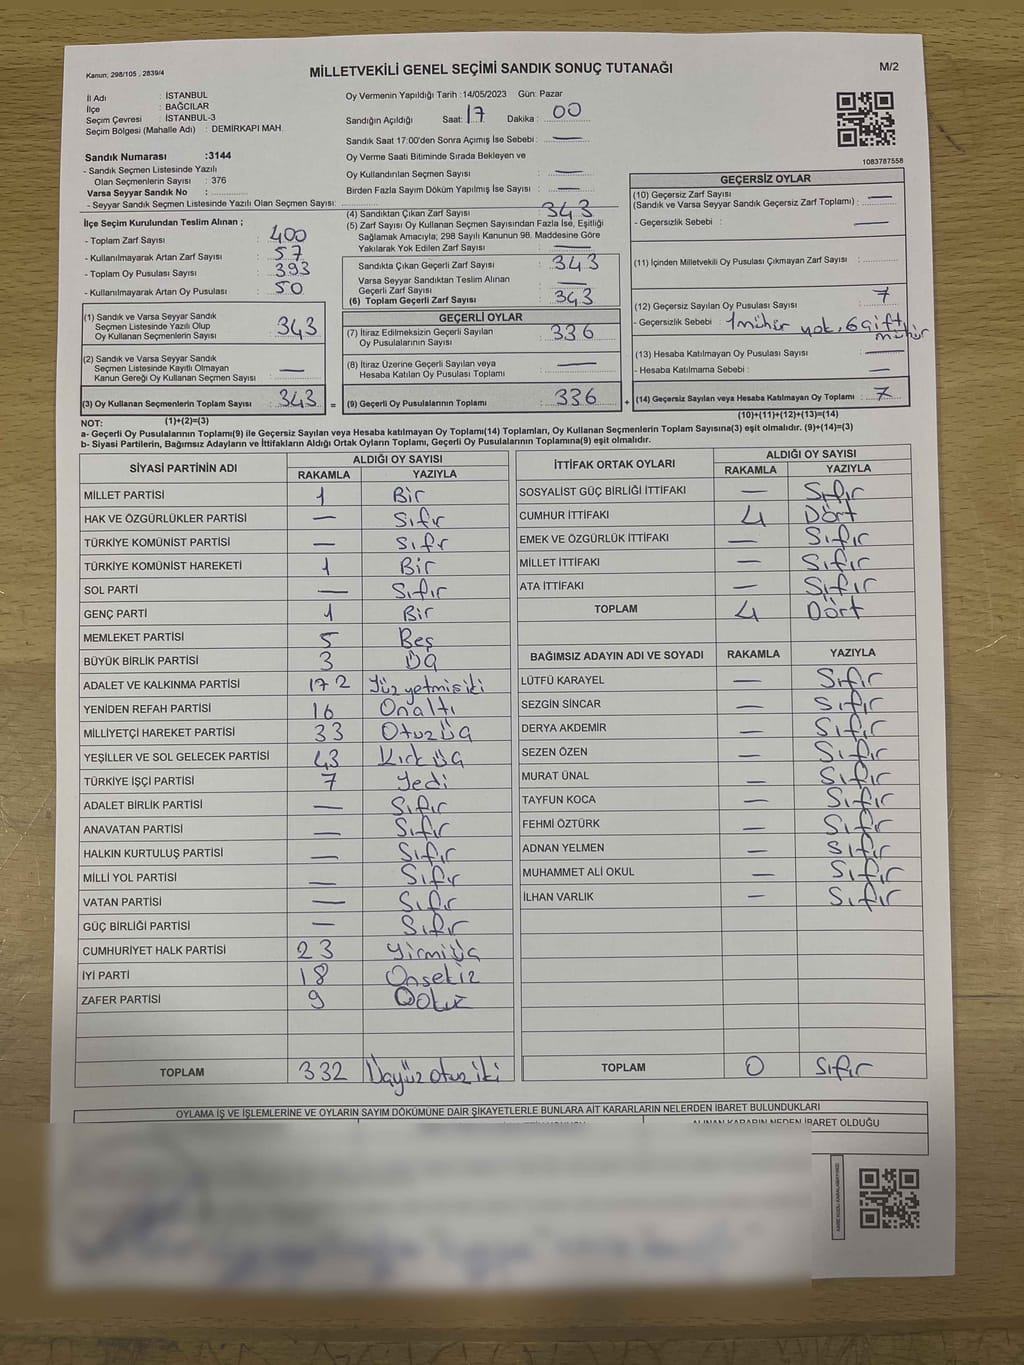 Kanun; 298/105 , 2839/4
MİLLETVEKİLİ GENEL SEÇİMİ SANDIK SONUÇ TUTANAĞI
M/2
İl Adı : İSTANBUL
İlçe : BAĞCILAR
Seçim Çevresi : İSTANBUL-3
Seçim Bölgesi (Mahalle Adı) : DEMİRKAPI MAH.
Sandık Numarası :3144
- Sandık Seçmen Listesinde Yazılı
Olan Seçmenlerin Sayısı : 376
Varsa Seyyar Sandık No :
- Seyyar Sandık Seçmen Listesinde Yazılı Olan Seçmen Sayısı:
İlçe Seçim Kurulundan Teslim Alınan ;
- Toplam Zarf Sayısı : 400
- Kullanılmayarak Artan Zarf Sayısı : 57
- Toplam Oy Pusulası Sayısı : 393
- Kullanılmayarak Artan Oy Pusulası : 50
(1) Sandık ve Varsa Seyyar Sandık
Seçmen Listesinde Yazılı Olup
Oy Kullanan Seçmenlerin Sayısı : 343
(2) Sandık ve Varsa Seyyar Sandık
Seçmen Listesinde Kayıtlı Olmayan
Kanun Gereği Oy Kullanan Seçmen Sayısı : —
(3) Oy Kullanan Seçmenlerin Toplam Sayısı : 343 =
Oy Vermenin Yapıldığı Tarih : 14/05/2023 Gün: Pazar
Sandığın Açıldığı Saat: 17 Dakika : 00
Sandık Saat 17:00'den Sonra Açımış İse Sebebi : —
Oy Verme Saati Bitiminde Sırada Bekleyen ve
Oy Kullandırılan Seçmen Sayısı : —
Birden Fazla Sayım Döküm Yapılmış İse Sayısı : —
(4) Sandıktan Çıkan Zarf Sayısı : 343
(5) Zarf Sayısı Oy Kullanan Seçmen Sayısından Fazla İse, Eşitliği
Sağlamak Amacıyla; 298 Sayılı Kanunun 98. Maddesine Göre
Yakılarak Yok Edilen Zarf Sayısı : —
Sandıkta Çıkan Geçerli Zarf Sayısı : 343
Varsa Seyyar Sandıktan Teslim Alınan
Geçerli Zarf Sayısı : —
(6) Toplam Geçerli Zarf Sayısı : 343
GEÇERLİ OYLAR
(7) İtiraz Edilmeksizin Geçerli Sayılan
Oy Pusulalarının Sayısı : 336
(8) İtiraz Üzerine Geçerli Sayılan veya
Hesaba Katılan Oy Pusulası Toplamı : —
(9) Geçerli Oy Pusulalarının Toplamı : 336 +
1083787558
GEÇERSİZ OYLAR
(10) Geçersiz Zarf Sayısı
(Sandık ve Varsa Seyyar Sandık Geçersiz Zarf Toplamı) : —
- Geçersizlik Sebebi : —
(11) İçinden Milletvekili Oy Pusulası Çıkmayan Zarf Sayısı :
(12) Geçersiz Sayılan Oy Pusulası Sayısı : 7
- Geçersizlik Sebebi : 1 mühür yok, 6 çift
mühür
(13) Hesaba Katılmayan Oy Pusulası Sayısı : —
- Hesaba Katılmama Sebebi : —
(14) Geçersiz Sayılan veya Hesaba Katılmayan Oy Toplamı : 7
NOT: (1)+(2)=(3) (10)+(11)+(12)+(13)=(14)
a- Geçerli Oy Pusulalarının Toplamı(9) ile Geçersiz Sayılan veya Hesaba katılmayan Oy Toplamı(14) Toplamları, Oy Kullanan Seçmenlerin Toplam Sayısına(3) eşit olmalıdır. (9)+(14)=(3)
b- Siyasi Partilerin, Bağımsız Adayların ve İttifakların Aldığı Ortak Oyların Toplamı, Geçerli Oy Pusulalarının Toplamına(9) eşit olmalıdır.
SİYASİ PARTİNİN ADI ALDIĞI OY SAYISI
RAKAMLA YAZIYLA
MİLLET PARTİSİ 1 Bir
HAK VE ÖZGÜRLÜKLER PARTİSİ — Sıfır
TÜRKİYE KOMÜNİST PARTİSİ — Sıfır
TÜRKİYE KOMÜNİST HAREKETİ 1 Bir
SOL PARTİ — Sıfır
GENÇ PARTİ 1 Bir
MEMLEKET PARTİSİ 5 Beş
BÜYÜK BİRLİK PARTİSİ 3 Üç
ADALET VE KALKINMA PARTİSİ 172 Yüz yetmiş iki
YENİDEN REFAH PARTİSİ 16 Onaltı
MİLLİYETÇİ HAREKET PARTİSİ 33 Otuz Üç
YEŞİLLER VE SOL GELECEK PARTİSİ 43 Kırk Üç
TÜRKİYE İŞÇİ PARTİSİ 7 Yedi
ADALET BİRLİK PARTİSİ — Sıfır
ANAVATAN PARTİSİ — Sıfır
HALKIN KURTULUŞ PARTİSİ — Sıfır
MİLLİ YOL PARTİSİ — Sıfır
VATAN PARTİSİ — Sıfır
GÜÇ BİRLİĞİ PARTİSİ — Sıfır
CUMHURİYET HALK PARTİSİ 23 Yirmi Üç
İYİ PARTİ 18 Onsekiz
ZAFER PARTİSİ 9 Dokuz
TOPLAM 332 Üçyüz otuz iki
İTTİFAK ORTAK OYLARI ALDIĞI OY SAYISI
RAKAMLA YAZIYLA
SOSYALİST GÜÇ BİRLİĞİ İTTİFAKI — Sıfır
CUMHUR İTTİFAKI 4 Dört
EMEK VE ÖZGÜRLÜK İTTİFAKI — Sıfır
MİLLET İTTİFAKI — Sıfır
ATA İTTİFAKI — Sıfır
TOPLAM 4 Dört
BAĞIMSIZ ADAYIN ADI VE SOYADI RAKAMLA YAZIYLA
LÜTFÜ KARAYEL — Sıfır
SEZGİN SİNCAR — Sıfır
DERYA AKDEMİR — Sıfır
SEZEN ÖZEN — Sıfır
MURAT ÜNAL — Sıfır
TAYFUN KOCA — Sıfır
FEHMİ ÖZTÜRK — Sıfır
ADNAN YELMEN — Sıfır
MUHAMMET ALİ OKUL — Sıfır
İLHAN VARLIK — Sıfır
TOPLAM 0 Sıfır
OYLAMA İŞ VE İŞLEMLERİNE VE OYLARIN SAYIM DÖKÜMÜNE DAİR ŞİKAYETLERLE BUNLARA AİT KARARLARIN NELERDEN İBARET BULUNDUKLARI
ALINAN KARARIN NEDEN İBARET OLDUĞU